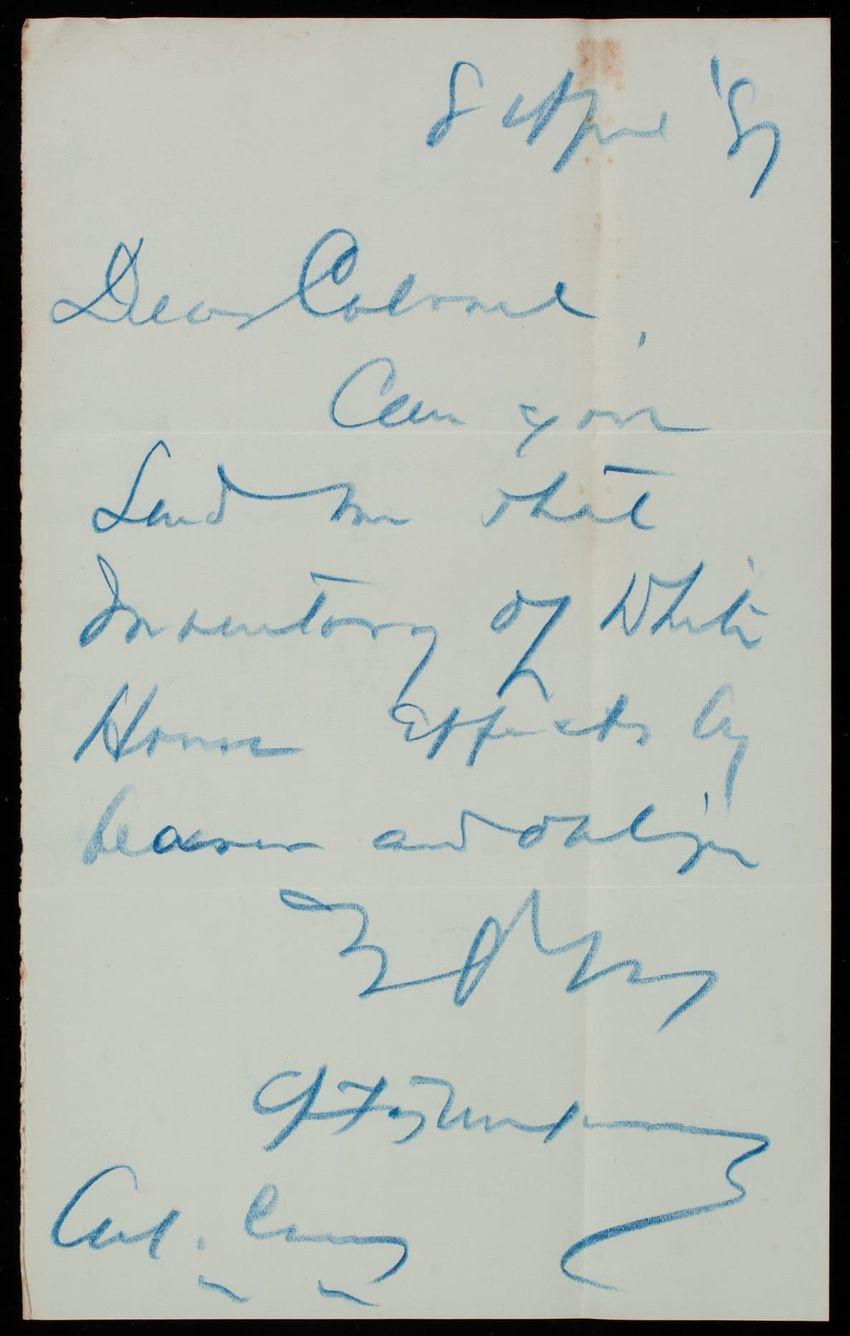 8 April '81
Dear Colonel,
Can you
send me that
Inventory of White
House Effects by
bearer and oblige
Col. Casey